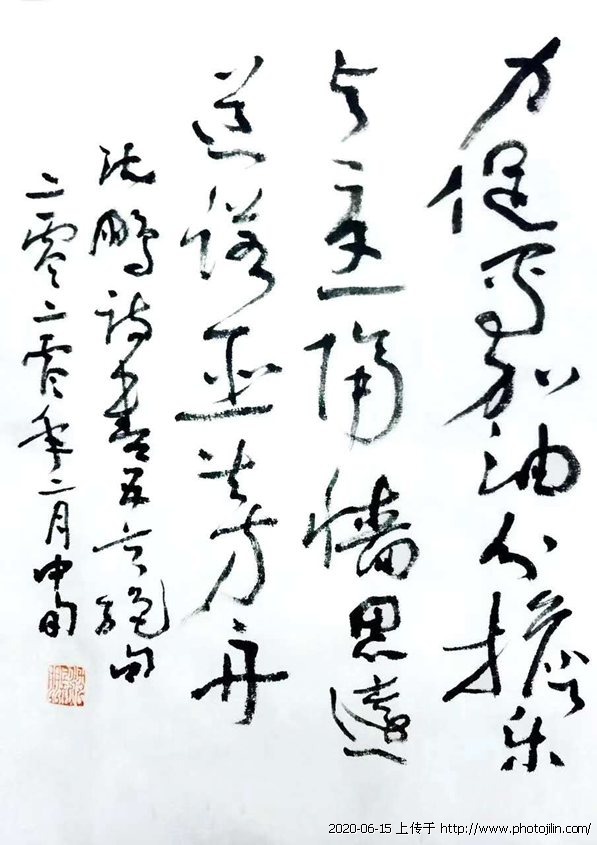 力促加油分擔樂
与憂隔墻思遠
道諾亞共方舟
沈鹏詩書五言絕句
二零二零年二月中旬
2020-06-15 上传于 http://www.photojilin.com/